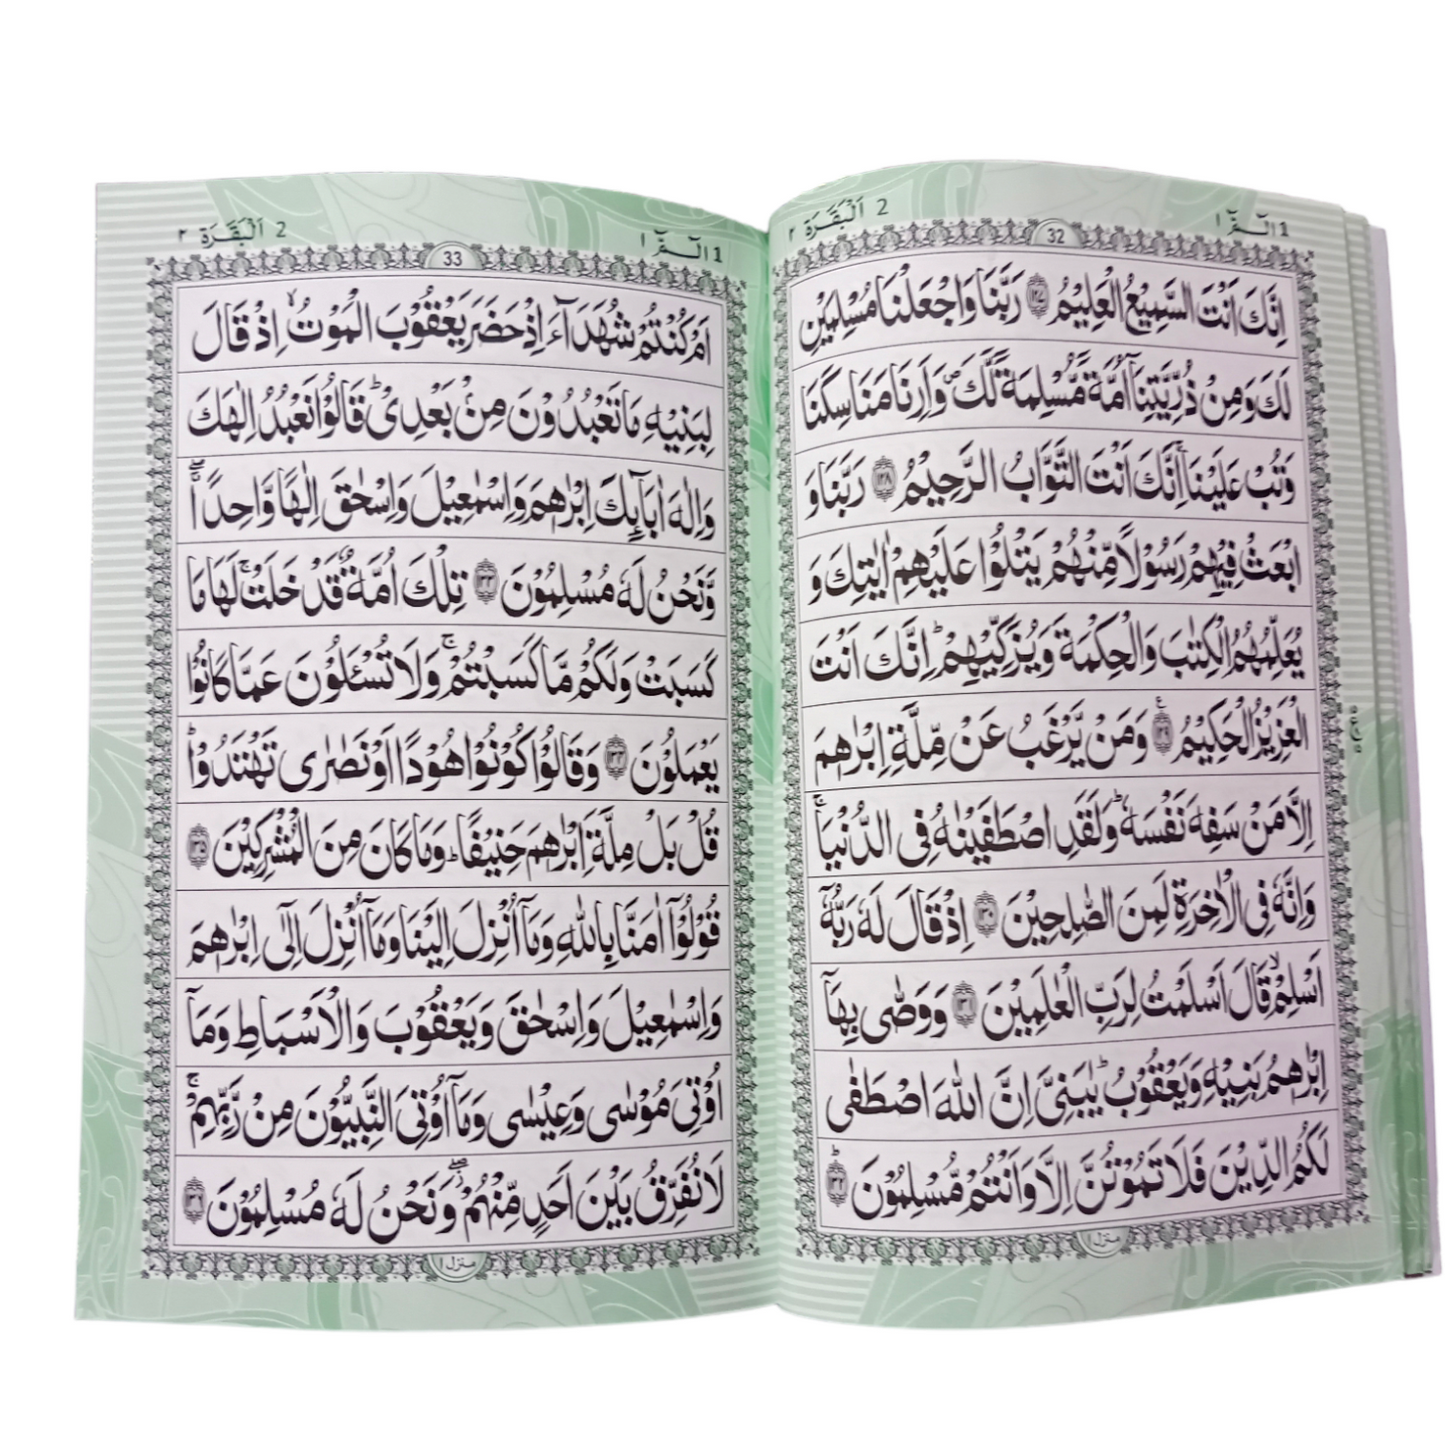 1 الٓـمّٓ ١
2 اَلْبَقَرَة ٢
32
اِنَّكَ اَنْتَ السَّمِيْعُ الْعَلِيْمُ ﴿١٢٧﴾ رَبَّنَا وَاجْعَلْنَا مُسْلِمَيْنِ
لَكَ وَمِنْ ذُرِّيَّتِنَاۤ اُمَّةً مُّسْلِمَةً لَّكَ ۪ وَاَرِنَا مَنَاسِكَنَا
وَتُبْ عَلَيْنَا ۚ اِنَّكَ اَنْتَ التَّوَّابُ الرَّحِيْمُ ﴿١٢٨﴾ رَبَّنَا وَ
ابْعَثْ فِيْهِمْ رَسُوْلًا مِّنْهُمْ يَتْلُوْا عَلَيْهِمْ اٰيٰتِكَ وَ
يُعَلِّمُهُمُ الْكِتٰبَ وَالْحِكْمَةَ وَيُزَكِّيْهِمْ ؕ اِنَّكَ اَنْتَ
الْعَزِيْزُ الْحَكِيْمُ ﴿١٢٩﴾ وَمَنْ يَّرْغَبُ عَنْ مِّلَّةِ اِبْرٰهٖمَ
اِلَّا مَنْ سَفِهَ نَفْسَهٗ ؕ وَلَقَدِ اصْطَفَيْنٰهُ فِى الدُّنْيَا ۚ
وَاِنَّهٗ فِى الْاٰخِرَةِ لَمِنَ الصّٰلِحِيْنَ ﴿١٣٠﴾ اِذْ قَالَ لَهٗ رَبُّهٗۤ
اَسْلِمْ ۙ قَالَ اَسْلَمْتُ لِرَبِّ الْعٰلَمِيْنَ ﴿١٣١﴾ وَوَصّٰى بِهَاۤ
اِبْرٰهٖمُ بَنِيْهِ وَيَعْقُوْبُ ؕ يٰبَنِىَّ اِنَّ اللّٰهَ اصْطَفٰى
لَكُمُ الدِّيْنَ فَلَا تَمُوْتُنَّ اِلَّا وَاَنْتُمْ مُّسْلِمُوْنَ ﴿١٣٢﴾ ؕ
منزل ١
1 الٓـمّٓ ١
2 اَلْبَقَرَة ٢
33
اَمْ كُنْتُمْ شُهَدَآءَ اِذْ حَضَرَ يَعْقُوْبَ الْمَوْتُ ۙ اِذْ قَالَ
لِبَنِيْهِ مَا تَعْبُدُوْنَ مِنْۢ بَعْدِىْ ؕ قَالُوْا نَعْبُدُ اِلٰهَكَ
وَاِلٰهَ اٰبَآئِكَ اِبْرٰهٖمَ وَاِسْمٰعِيْلَ وَاِسْحٰقَ اِلٰهًا وَّاحِدًا ۖۚ
وَّنَحْنُ لَهٗ مُسْلِمُوْنَ ﴿١٣٣﴾ تِلْكَ اُمَّةٌ قَدْ خَلَتْ ۚ لَهَا مَا
كَسَبَتْ وَلَكُمْ مَّا كَسَبْتُمْ ۚ وَلَا تُسْـَٔلُوْنَ عَمَّا كَانُوْا
يَعْمَلُوْنَ ﴿١٣٤﴾ وَقَالُوْا كُوْنُوْا هُوْدًا اَوْ نَصٰرٰى تَهْتَدُوْا ؕ
قُلْ بَلْ مِلَّةَ اِبْرٰهٖمَ حَنِيْفًا ؕ وَمَا كَانَ مِنَ الْمُشْرِكِيْنَ ﴿١٣٥﴾
قُوْلُوْۤا اٰمَنَّا بِاللّٰهِ وَمَاۤ اُنْزِلَ اِلَيْنَا وَمَاۤ اُنْزِلَ اِلٰٓى اِبْرٰهٖمَ
وَاِسْمٰعِيْلَ وَاِسْحٰقَ وَيَعْقُوْبَ وَالْاَسْبَاطِ وَمَاۤ
اُوْتِىَ مُوْسٰى وَعِيْسٰى وَمَاۤ اُوْتِىَ النَّبِيُّوْنَ مِنْ رَّبِّهِمْ ۚ
لَا نُفَرِّقُ بَيْنَ اَحَدٍ مِّنْهُمْ ۖ وَنَحْنُ لَهٗ مُسْلِمُوْنَ ﴿١٣٦﴾
منزل ١